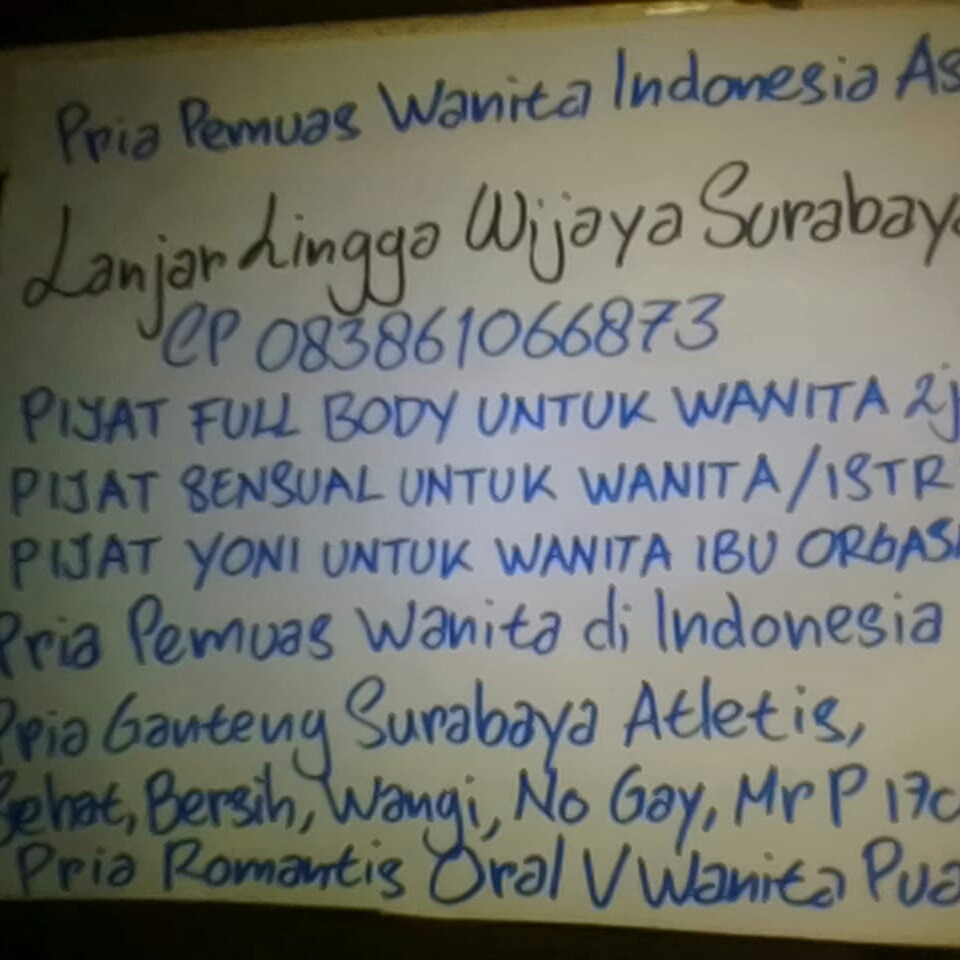 Pria Pemuas Wanita Indonesia As
Lanjar Lingga Wijaya Surabaya
CP 083861066873
PIJAT FULL BODY UNTUK WANITA 2j
PIJAT SENSUAL UNTUK WANITA/ISTR
PIJAT YONI UNTUK WANITA IBU ORGAS
Pria Pemuas Wanita di Indonesia
Pria Ganteng Surabaya Atletis,
Sehat, Bersih, Wangi, No Gay, Mr P 17c
Pria Romantis Oral V Wanita Pua